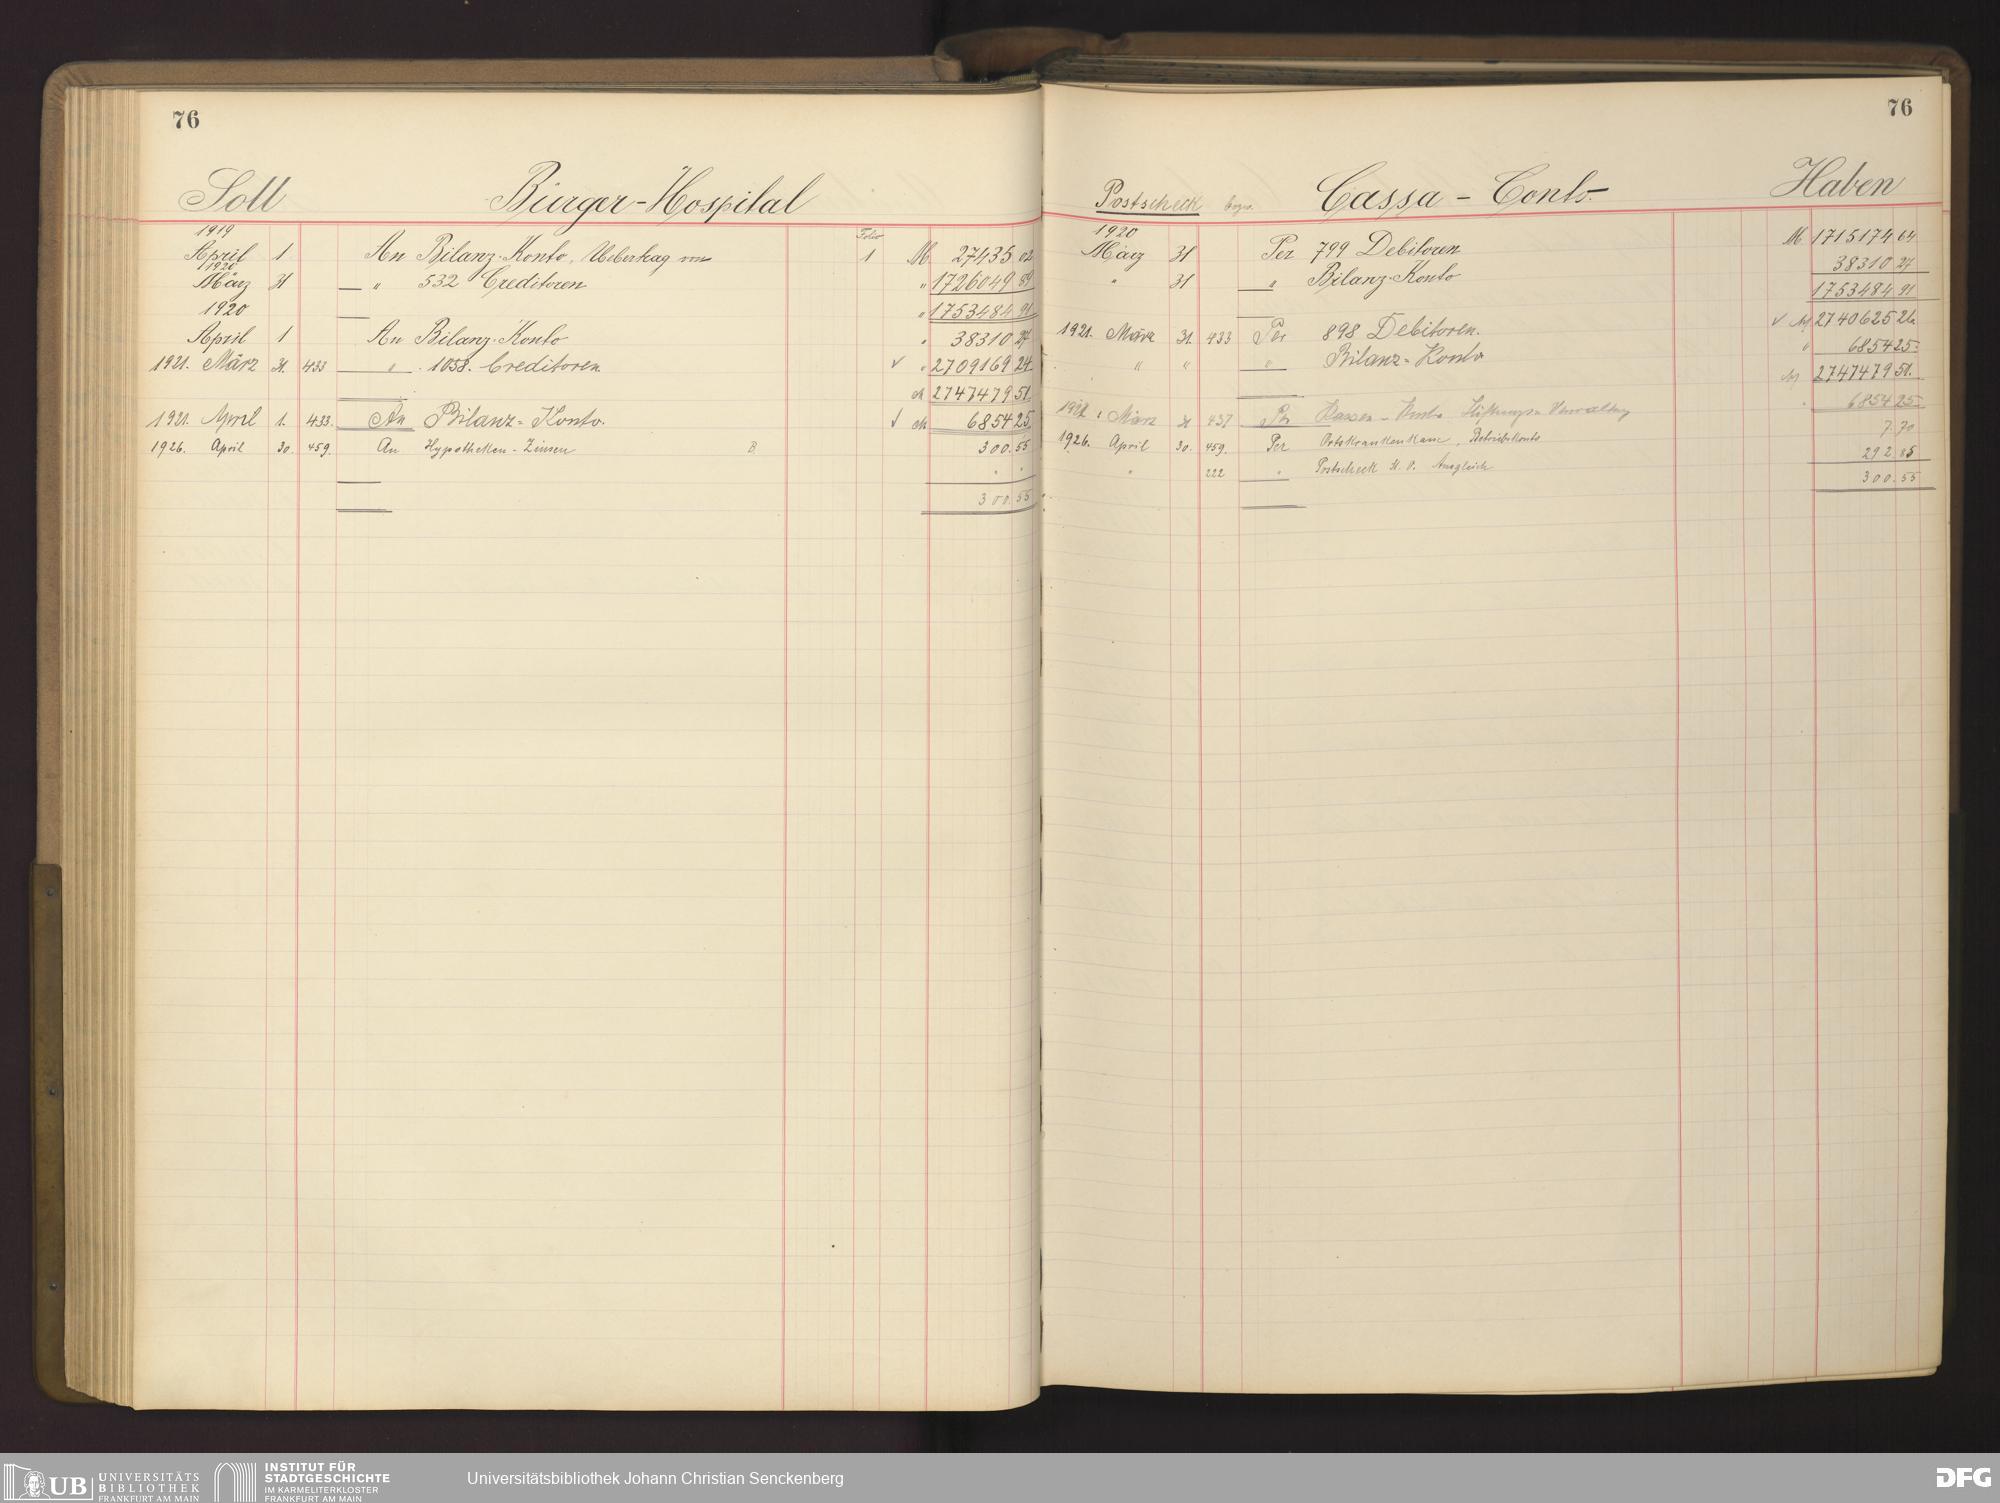 76
Soll Bürger-Hospital
1919 Folio
April 1 An Bilanz-Konto, Uebertrag von 1 M 27435 02
1920
März 31 " 532 Creditoren " 1726049 89
1920 " 1753484 91
April 1 An Bilanz-Konto " 38310 27
1921. März 31. 433 " 1058. Creditoren √ " 2709169 24
M 2747479 51.
1921. April 1. 433. An Bilanz-Konto. √ M 6854 25
1926. April 30. 459. An Hypotheken-Zinsen B. 300.55
" "
300.55
76
Postscheck Cassa-Conto Haben
1920
März 31 Per 799 Debitoren M 1715174 64
" 31 " Bilanz-Konto 38310 27
1753484 91
1921. März 31. 433 Per 898 Debitoren. √ M 2740625 26
" " " Bilanz-Konto " 6854 25
M 2747479 51.
März 31 437 Per Cassen-Konto Stiftungs-Verwaltung 6854 25
1926. April 30. 459. Per Ortskrankenkasse, Betriebskonto 7.70
" 222 " Postscheck K.O. Ausgleich 292.85
300.55
UB UNIVERSITÄTS
BIBLIOTHEK
FRANKFURT AM MAIN
INSTITUT FÜR
STADTGESCHICHTE
IM KARMELITERKLOSTER
FRANKFURT AM MAIN
Universitätsbibliothek Johann Christian Senckenberg
DFG